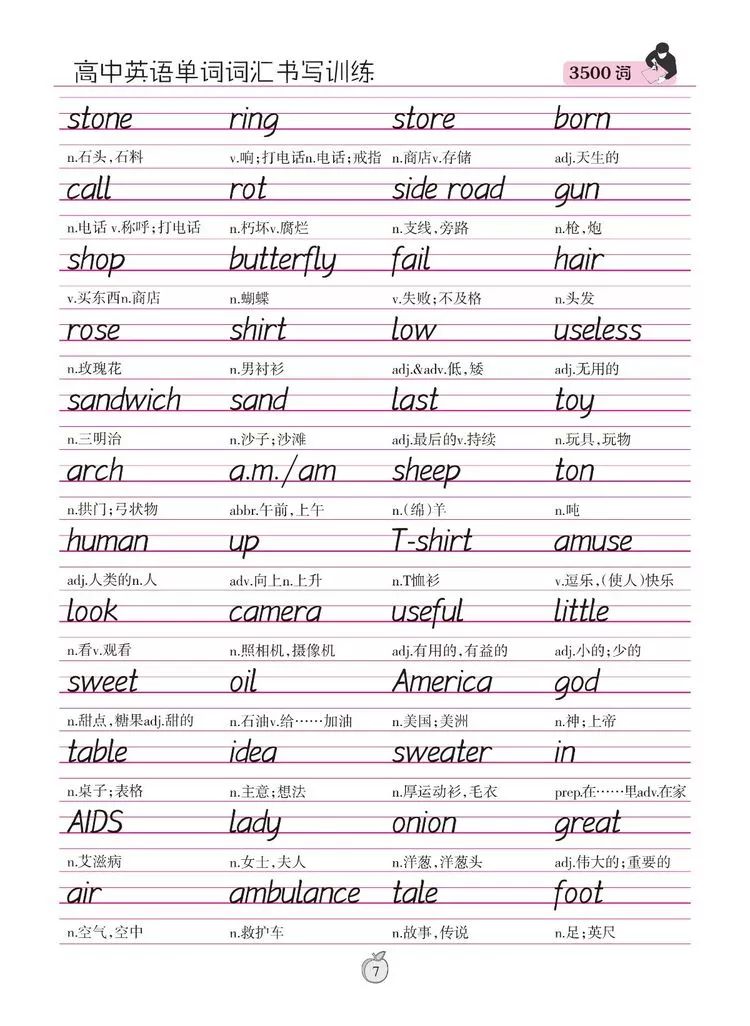 高中英语单词词汇书写训练 3500 词
stone ring store born
n.石头,石料 v.响;打电话n.电话;戒指 n.商店v.存储 adj.天生的
call rot side road gun
n.电话 v.称呼;打电话 n.朽坏v.腐烂 n.支线,旁路 n.枪,炮
shop butterfly fail hair
v.买东西n.商店 n.蝴蝶 v.失败;不及格 n.头发
rose shirt low useless
n.玫瑰花 n.男衬衫 adj.&adv.低,矮 adj.无用的
sandwich sand last toy
n.三明治 n.沙子;沙滩 adj.最后的v.持续 n.玩具,玩物
arch a.m./am sheep ton
n.拱门;弓状物 abbr.午前,上午 n.(绵)羊 n.吨
human up T-shirt amuse
adj.人类的n.人 adv.向上n.上升 n.T恤衫 v.逗乐,(使人)快乐
look camera useful little
n.看v.观看 n.照相机,摄像机 adj.有用的,有益的 adj.小的;少的
sweet oil America god
n.甜点,糖果adj.甜的 n.石油v.给……加油 n.美国;美洲 n.神;上帝
table idea sweater in
n.桌子;表格 n.主意;想法 n.厚运动衫,毛衣 prep.在……里adv.在家
AIDS lady onion great
n.艾滋病 n.女士,夫人 n.洋葱,洋葱头 adj.伟大的;重要的
air ambulance tale foot
n.空气,空中 n.救护车 n.故事,传说 n.足;英尺
7